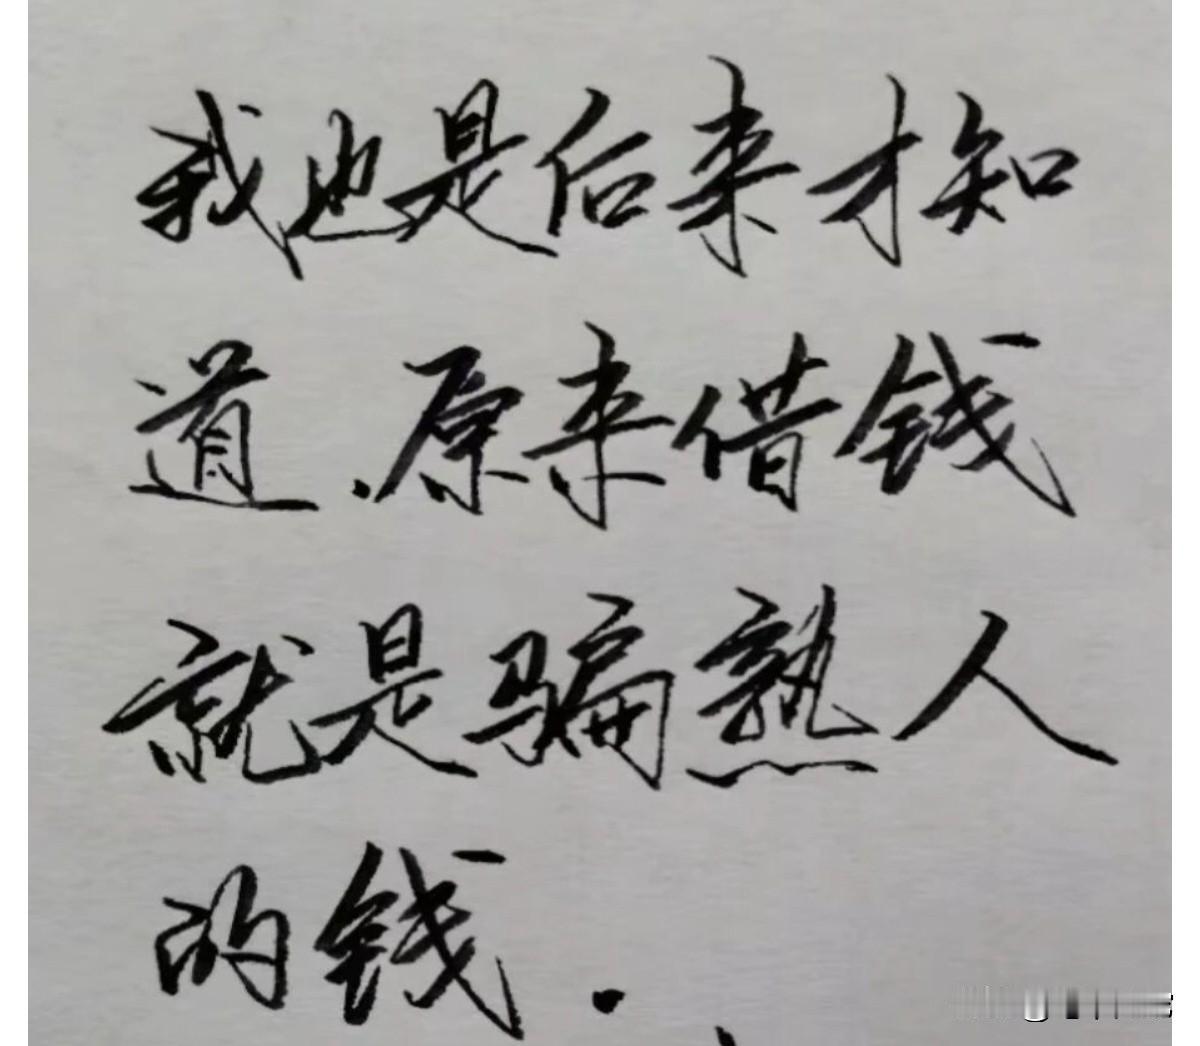 我也是后来才知
道.原来借钱
就是骗熟人
的钱.